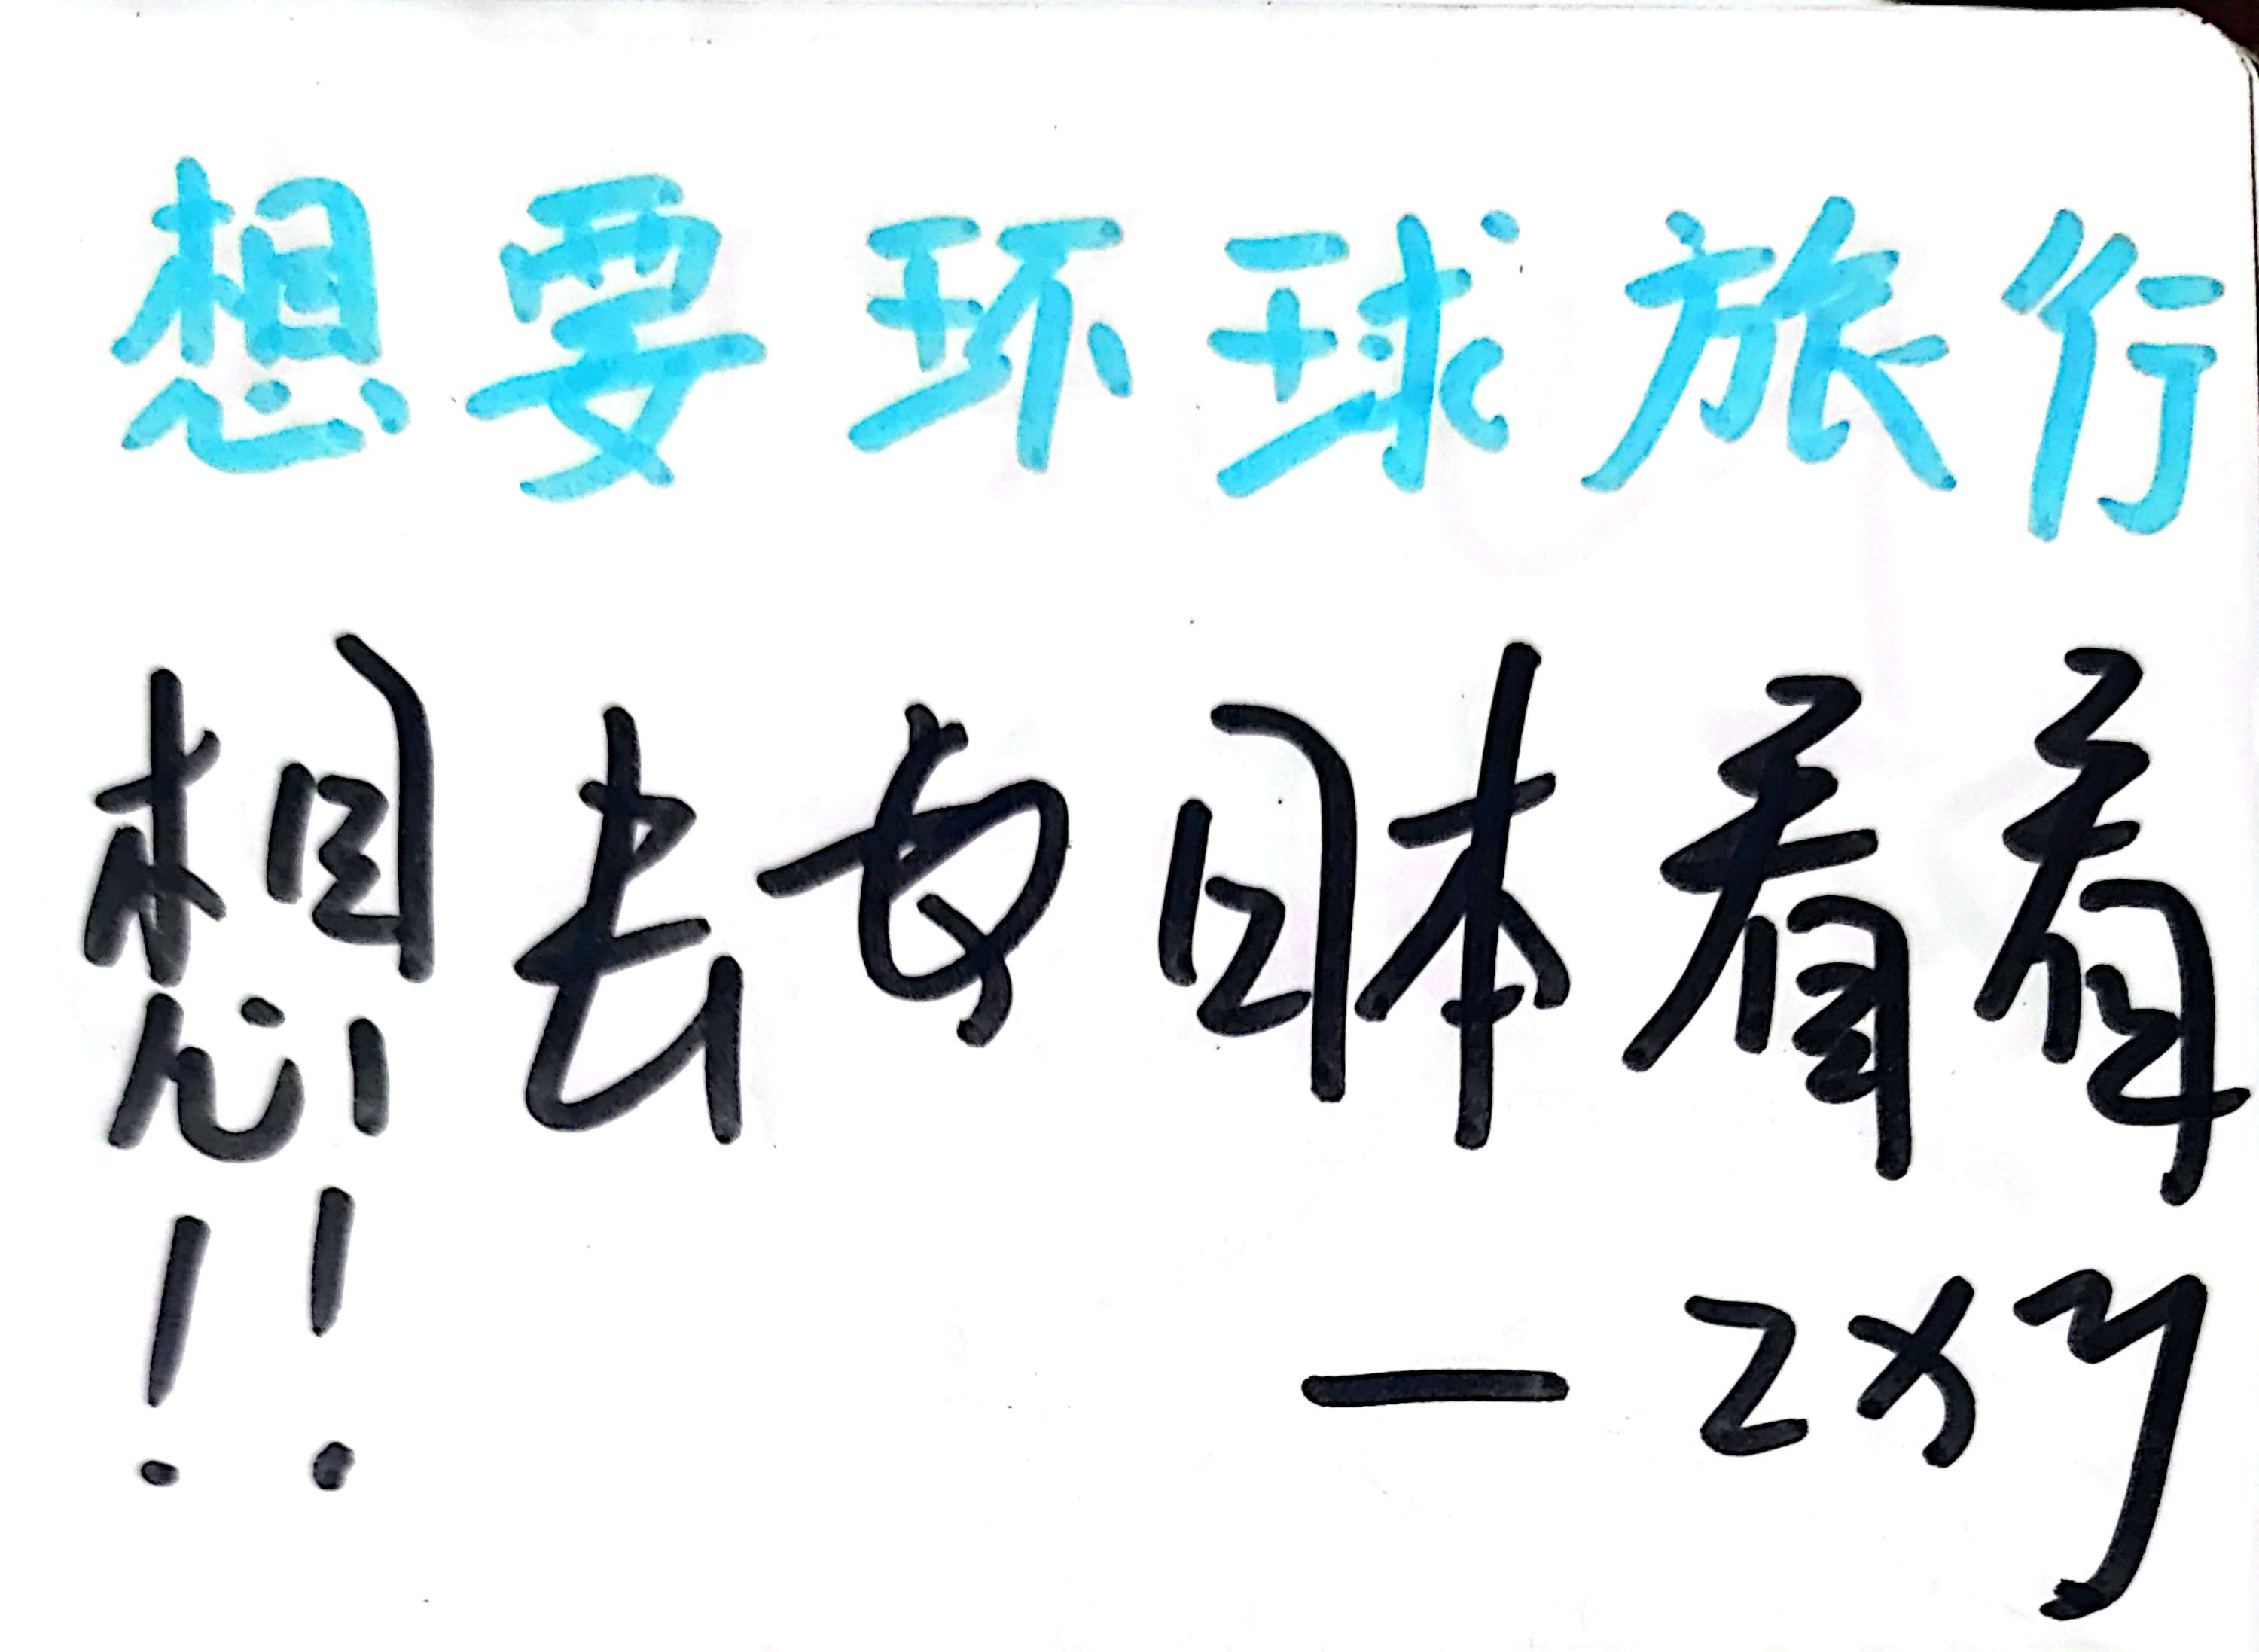 想要环球旅行
想去女日本看看
!!
—ZXY